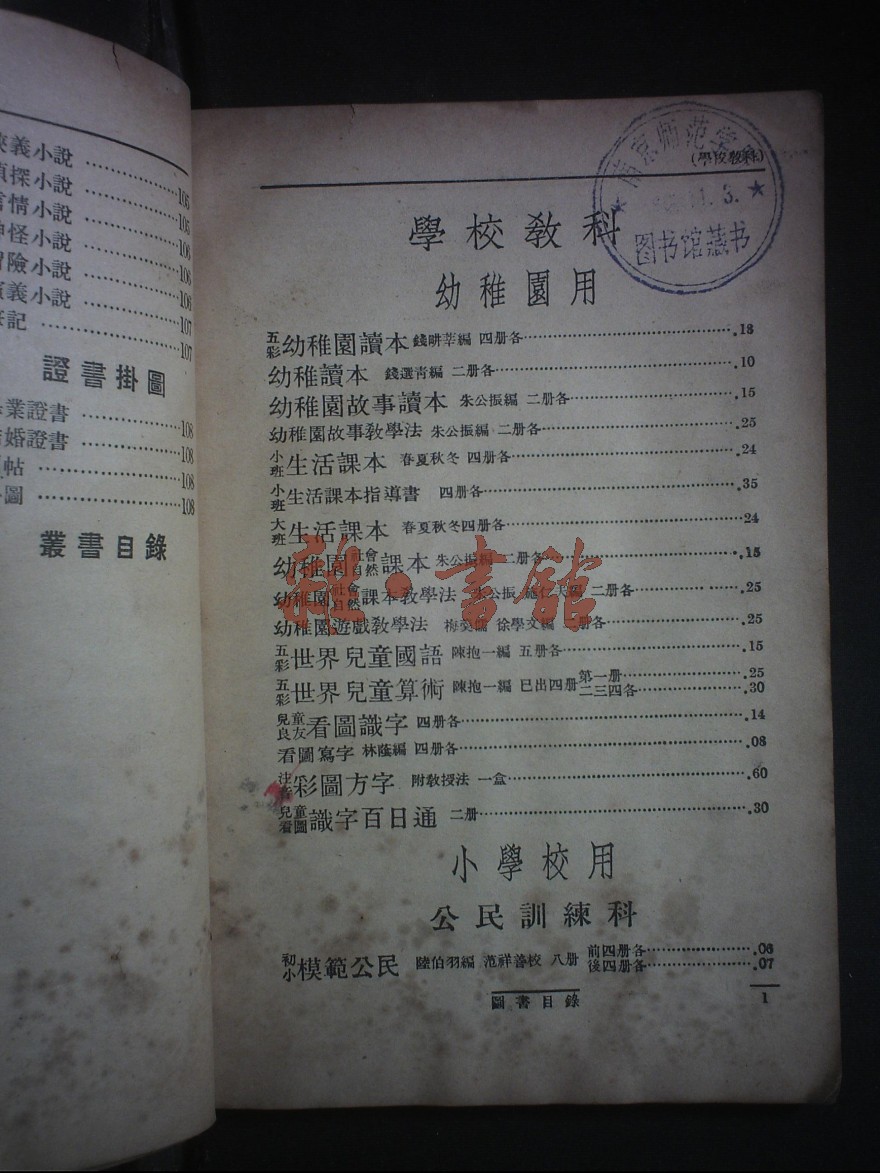 義小說 105
探小說 105
言情小說 106
怪小說 106
冒險小說 106
義小說 107
記 107
證書掛圖
業證書 108
婚證書 108
帖 108
圖 108
叢書目錄
(學校敎科)
南京师范
图书馆藏书
學校敎科
幼稚園用
五彩幼稚園讀本 錢畊莘編 四册各 .18
幼稚讀本 錢選靑編 二册各 .10
幼稚園故事讀本 朱公振編 二册各 .15
幼稚園故事敎學法 朱公振編 二册各 .25
小班生活課本 春夏秋冬 四册各 .24
小班生活課本指導書 四册各 .35
大班生活課本 春夏秋冬四册各 24
幼稚園社會自然課本 朱公振編 二册各 .15
幼稚園社會自然課本敎學法 朱公振 施仁夫編 二册各 .25
幼稚園遊戲敎學法 徐學文編 二册各 .25
五彩世界兒童國語 陳抱一編 五册各 .15
五彩世界兒童算術 陳抱一編 已出四册 第一册 .25 二三四各 .30
兒童良友看圖識字 四册各 .14
看圖寫字 林蔭編 四册各 .08
注音彩圖方字 附敎授法 一盒 .60
兒童看圖識字百日通 二册 .30
小學校用
公民訓練科
初小模範公民 陸伯羽編 范祥善校 八册 前四册各 .06 後四册各 .07
圖書目錄 1
雜·書館